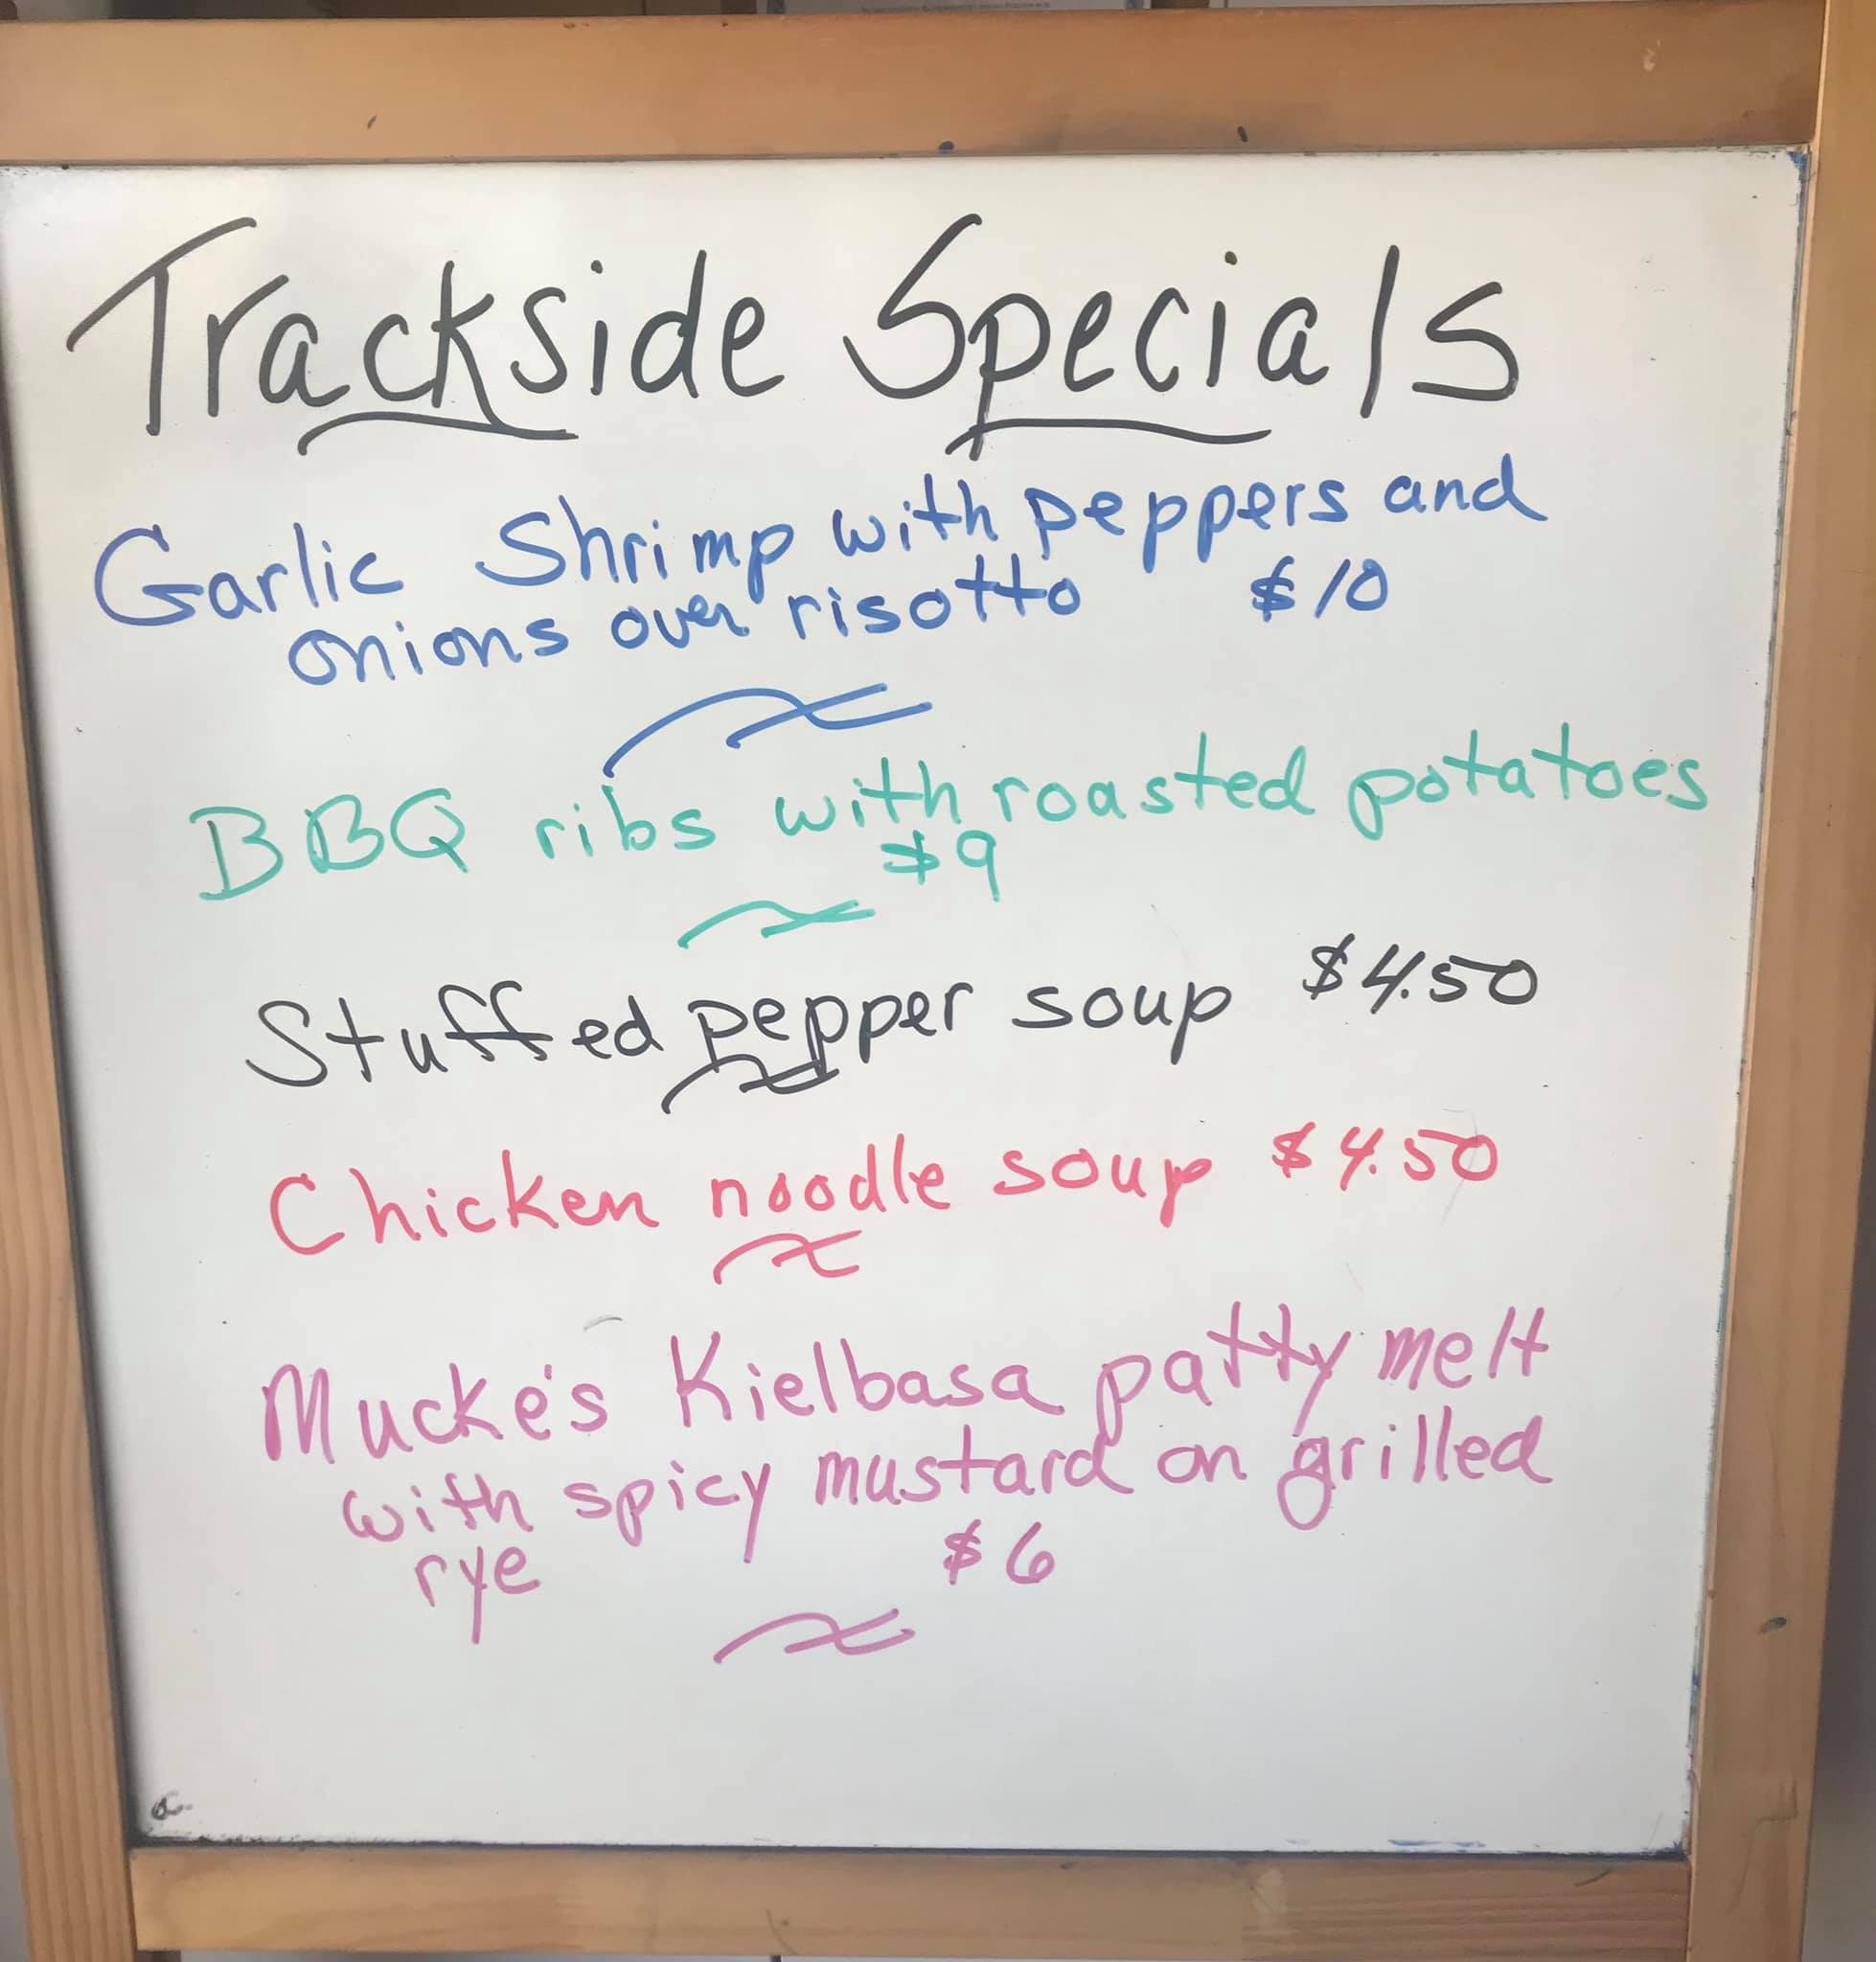 Trackside Specials
Garlic Shrimp with peppers and
onions over risotto $10
BBQ ribs with roasted potatoes
$9
Stuffed pepper soup $4.50
Chicken noodle soup $4.50
Mucke's Kielbasa patty melt
with spicy mustard on grilled
rye $6